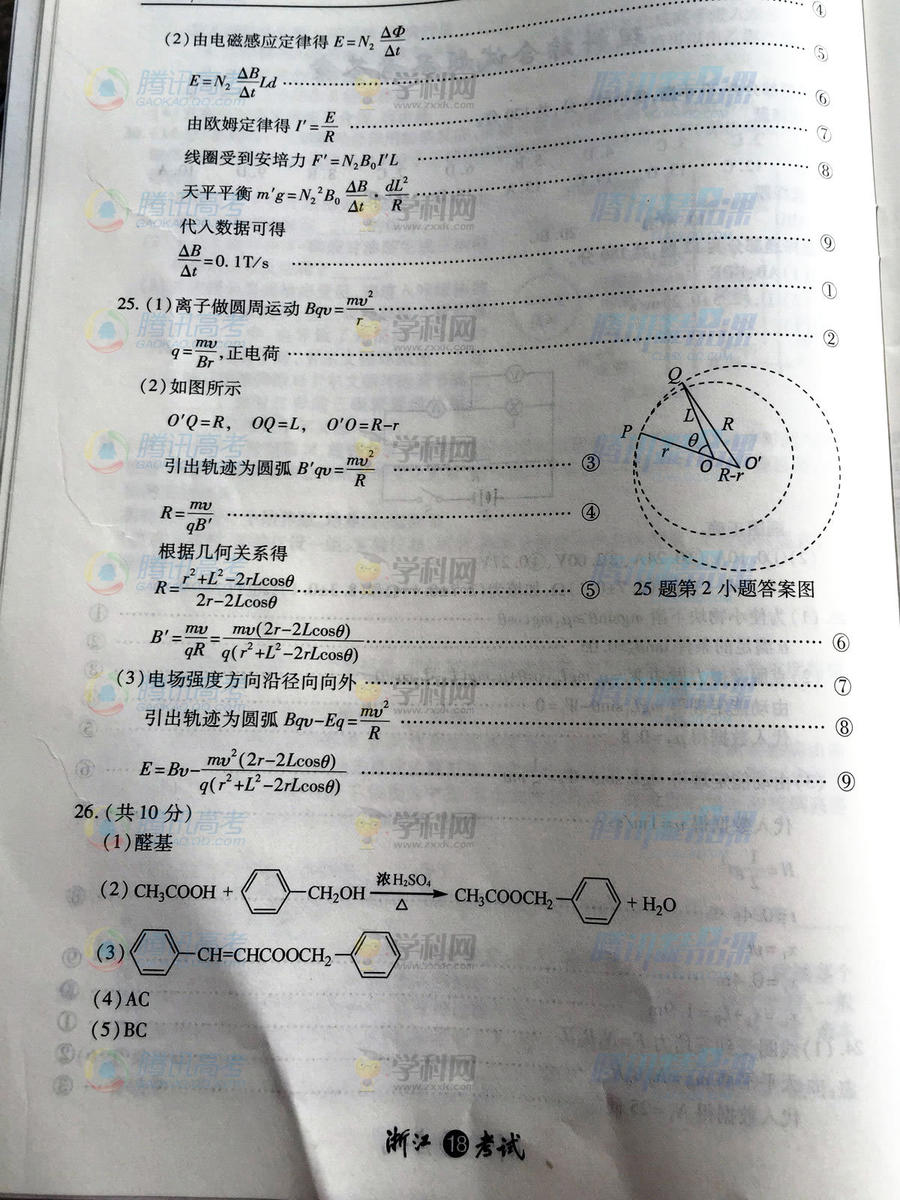 ④
(2)由电磁感应定律得 E=N₂ ΔΦ/Δt
⑤
E=N₂ ΔB/Δt Ld
⑥
由欧姆定律得 I′=E/R
⑦
线圈受到安培力 F′=N₂B₀I′L
⑧
天平平衡 m′g=N₂²B₀ ΔB/Δt · dL²/R
代入数据可得
⑨
ΔB/Δt=0.1T/s
①
25. (1)离子做圆周运动 Bqv=mv²/r
②
q=mv/Br,正电荷
(2)如图所示
O′Q=R, OQ=L, O′O=R-r
引出轨迹为圆弧 B′qv=mv²/R ③
R=mv/qB′ ④
根据几何关系得
R=r²+L²-2rLcosθ/2r-2Lcosθ ⑤
Q
L
R
P
r
θ
O
O′
R-r
25 题第 2 小题答案图
B′=mv/qR=mv(2r-2Lcosθ)/q(r²+L²-2rLcosθ) ⑥
(3)电场强度方向沿径向向外 ⑦
引出轨迹为圆弧 Bqv-Eq=mv²/R ⑧
E=Bv-mv²(2r-2Lcosθ)/q(r²+L²-2rLcosθ) ⑨
26.(共10分)
(1)醛基
(2) CH₃COOH + CH₂OH 浓H₂SO₄ △ CH₃COOCH₂ + H₂O
(3) CH=CHCOOCH₂
(4)AC
(5)BC
浙江 18 考试
腾讯高考
GAOKAO.QQ.COM
学科网
www.zxxk.com
腾讯精品课
CLASS.QQ.COM